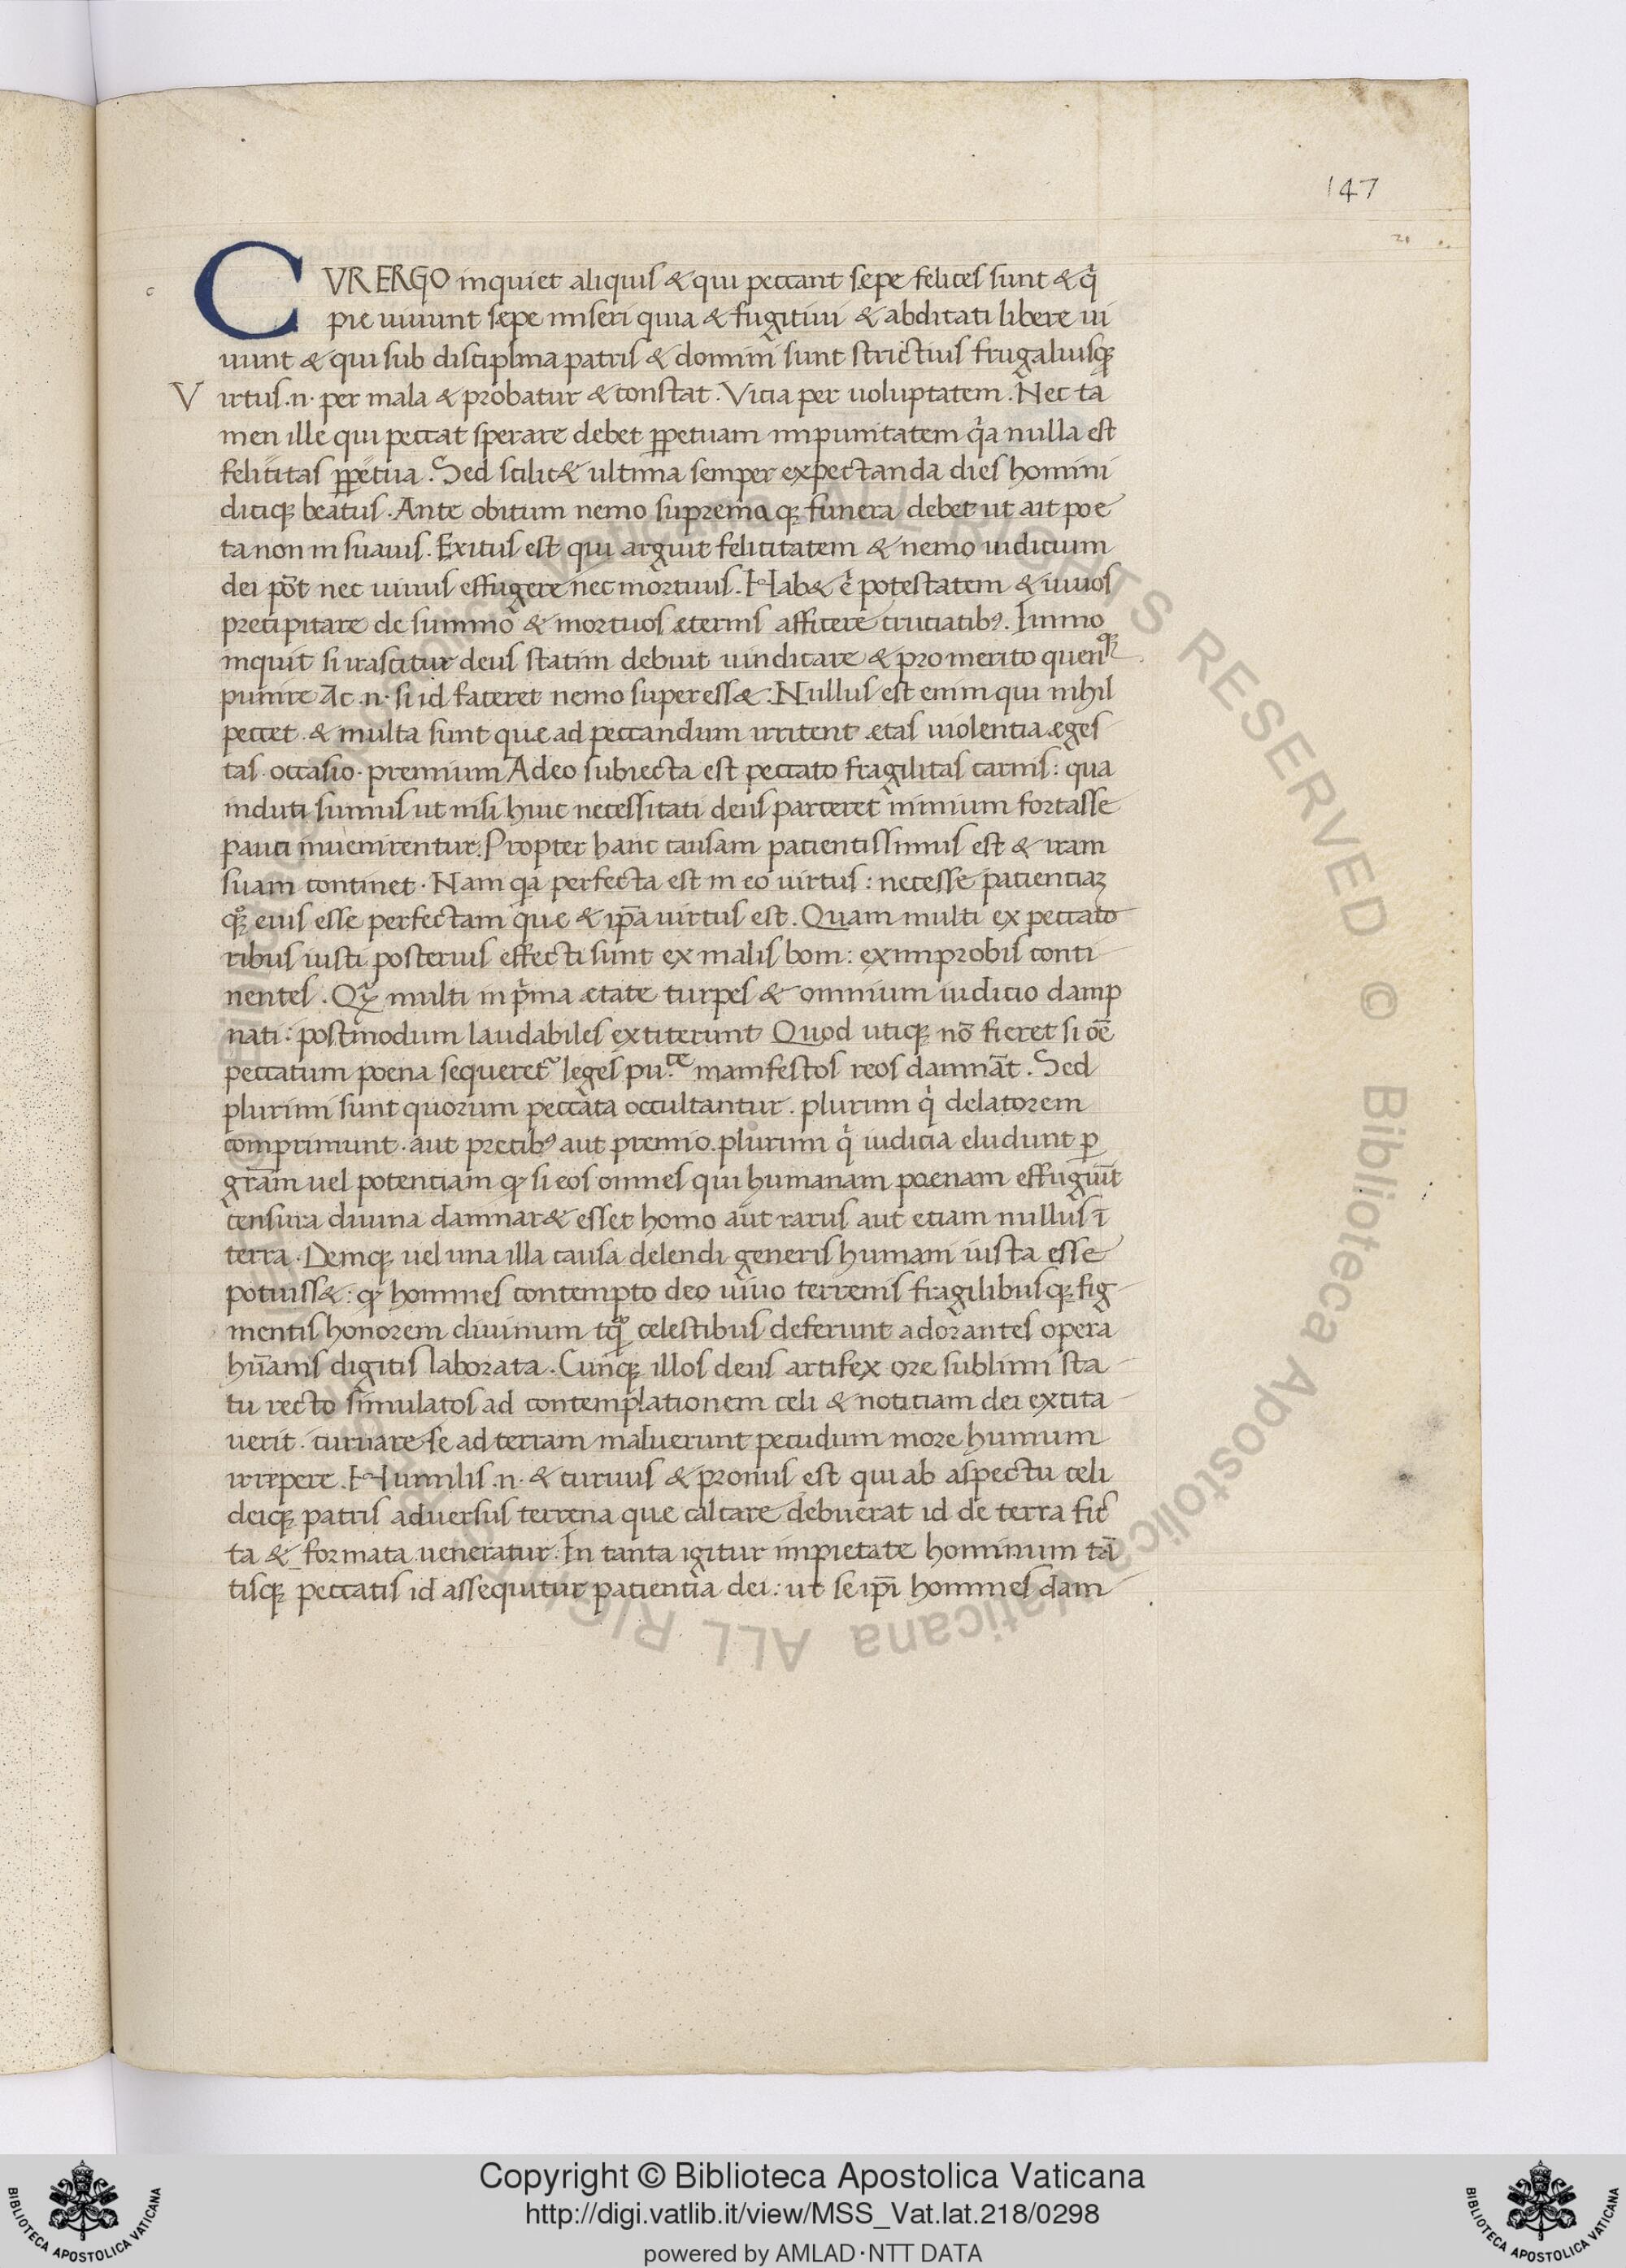 147
21
CVR ERGO inquiet aliquis & qui peccant sepe felices sunt & q̄
pie uiuunt sæpe miseri quia & fugitiui & abditati libere ui
uunt & qui sub disciplina patris & domini sunt strictius frugaliusq̢
Virtus .n. per mala & probatur & constat. Vicia per uoluptatem. Nec ta
men ille qui peccat sperare debet ꝑpetuam impunitatem qͣa nulla est
felicitas ꝑpetua. Sed scilic& ultima semper expectanda dies homini
diciq̢ beatus. Ante obitum nemo supremaq̢ funera debet ut ait poe
ta non insuauis. Exitus est qui arguit felicitatem & nemo iudicium
dei pōt nec uiuus effugere nec mortuus. Hab& .n. potestatem & uiuos
precipitare de summo & mortuos æternis afficere cruciatibꝰ. Immo
inquit si irascitur deus statim debuit uindicare & pro merito quenq̢
punire Ac .n. si id faceret nemo superess&. Nullus est enim qui nihil
peccet. & multa sunt que ad peccandum irritent ætas uiolentia æges
tas. occasio. premium Adeo subiecta est peccato fragilitas carnis: qua
induti sumus ut nisi huic necessitati deus parceret nimium fortasse
pauci inuenirentur. Propter hanc causam pacientissimus est & iram
suam continet. Nam qͣa perfecta est in eo uirtus: necesse pacientiaꝫ
qͦq̢ eius esse perfectam que & ip̄a uirtus est. Quam multi ex peccato
ribus iusti posterius effecti sunt ex malis boni: ex improbis conti
nentes. Qͣ multi in pͥma ætate turpes & omnium iudicio damp
nati: postmodum laudabiles extiterunt Quod utiq̢ nō fieret si oē
peccatum poena sequeret̉ leges pu.ce manifestos reos damnāt. Sed
plurimi sunt quorum peccata occultantur. plurimi qͥ delatorem
comprimunt. aut precibꝰ aut premio. plurimi qͥ iudicia eludunt ꝑ
grām uel potenciam qͩ si eos omnes qui humanam poenam effugiūt
censura diuina damnar& esset homo aut rarus aut etiam nullus ī
terra. Deniq̢ uel una illa causa delendi generis humani iusta esse
potuiss&: qͩ homines contempto deo uiuo terrenis fragilibusq̢ fig
mentis honorem diuinum tqͣ celestibus deferunt adorantes opera
hūanis digitis laborata. Cunq̢ illos deus artifex ore sublimi sta
tu recto simulatos ad contemplationem celi & noticiam dei excita
uerit. curuare se ad terram maluerunt pecudum more humum
irrepere. Humilis .n. & curuus & pronus est qui ab aspectu celi
deiq̢ patris aduersus terrena que calcare debuerat id de terra fic
ta & formata ueneratur. In tanta igitur impietate hominum tā
tisq̢ peccatis id assequitur patientia dei: ut se ip̄i homines dam
© Biblioteca Apostolica Vaticana ALL RIGHTS RESERVED
Copyright © Biblioteca Apostolica Vaticana
http://digi.vatlib.it/view/MSS_Vat.lat.218/0298
powered by AMLAD·NTT DATA
BIBLIOTECA APOSTOLICA VATICANA
BIBLIOTECA APOSTOLICA VATICANA